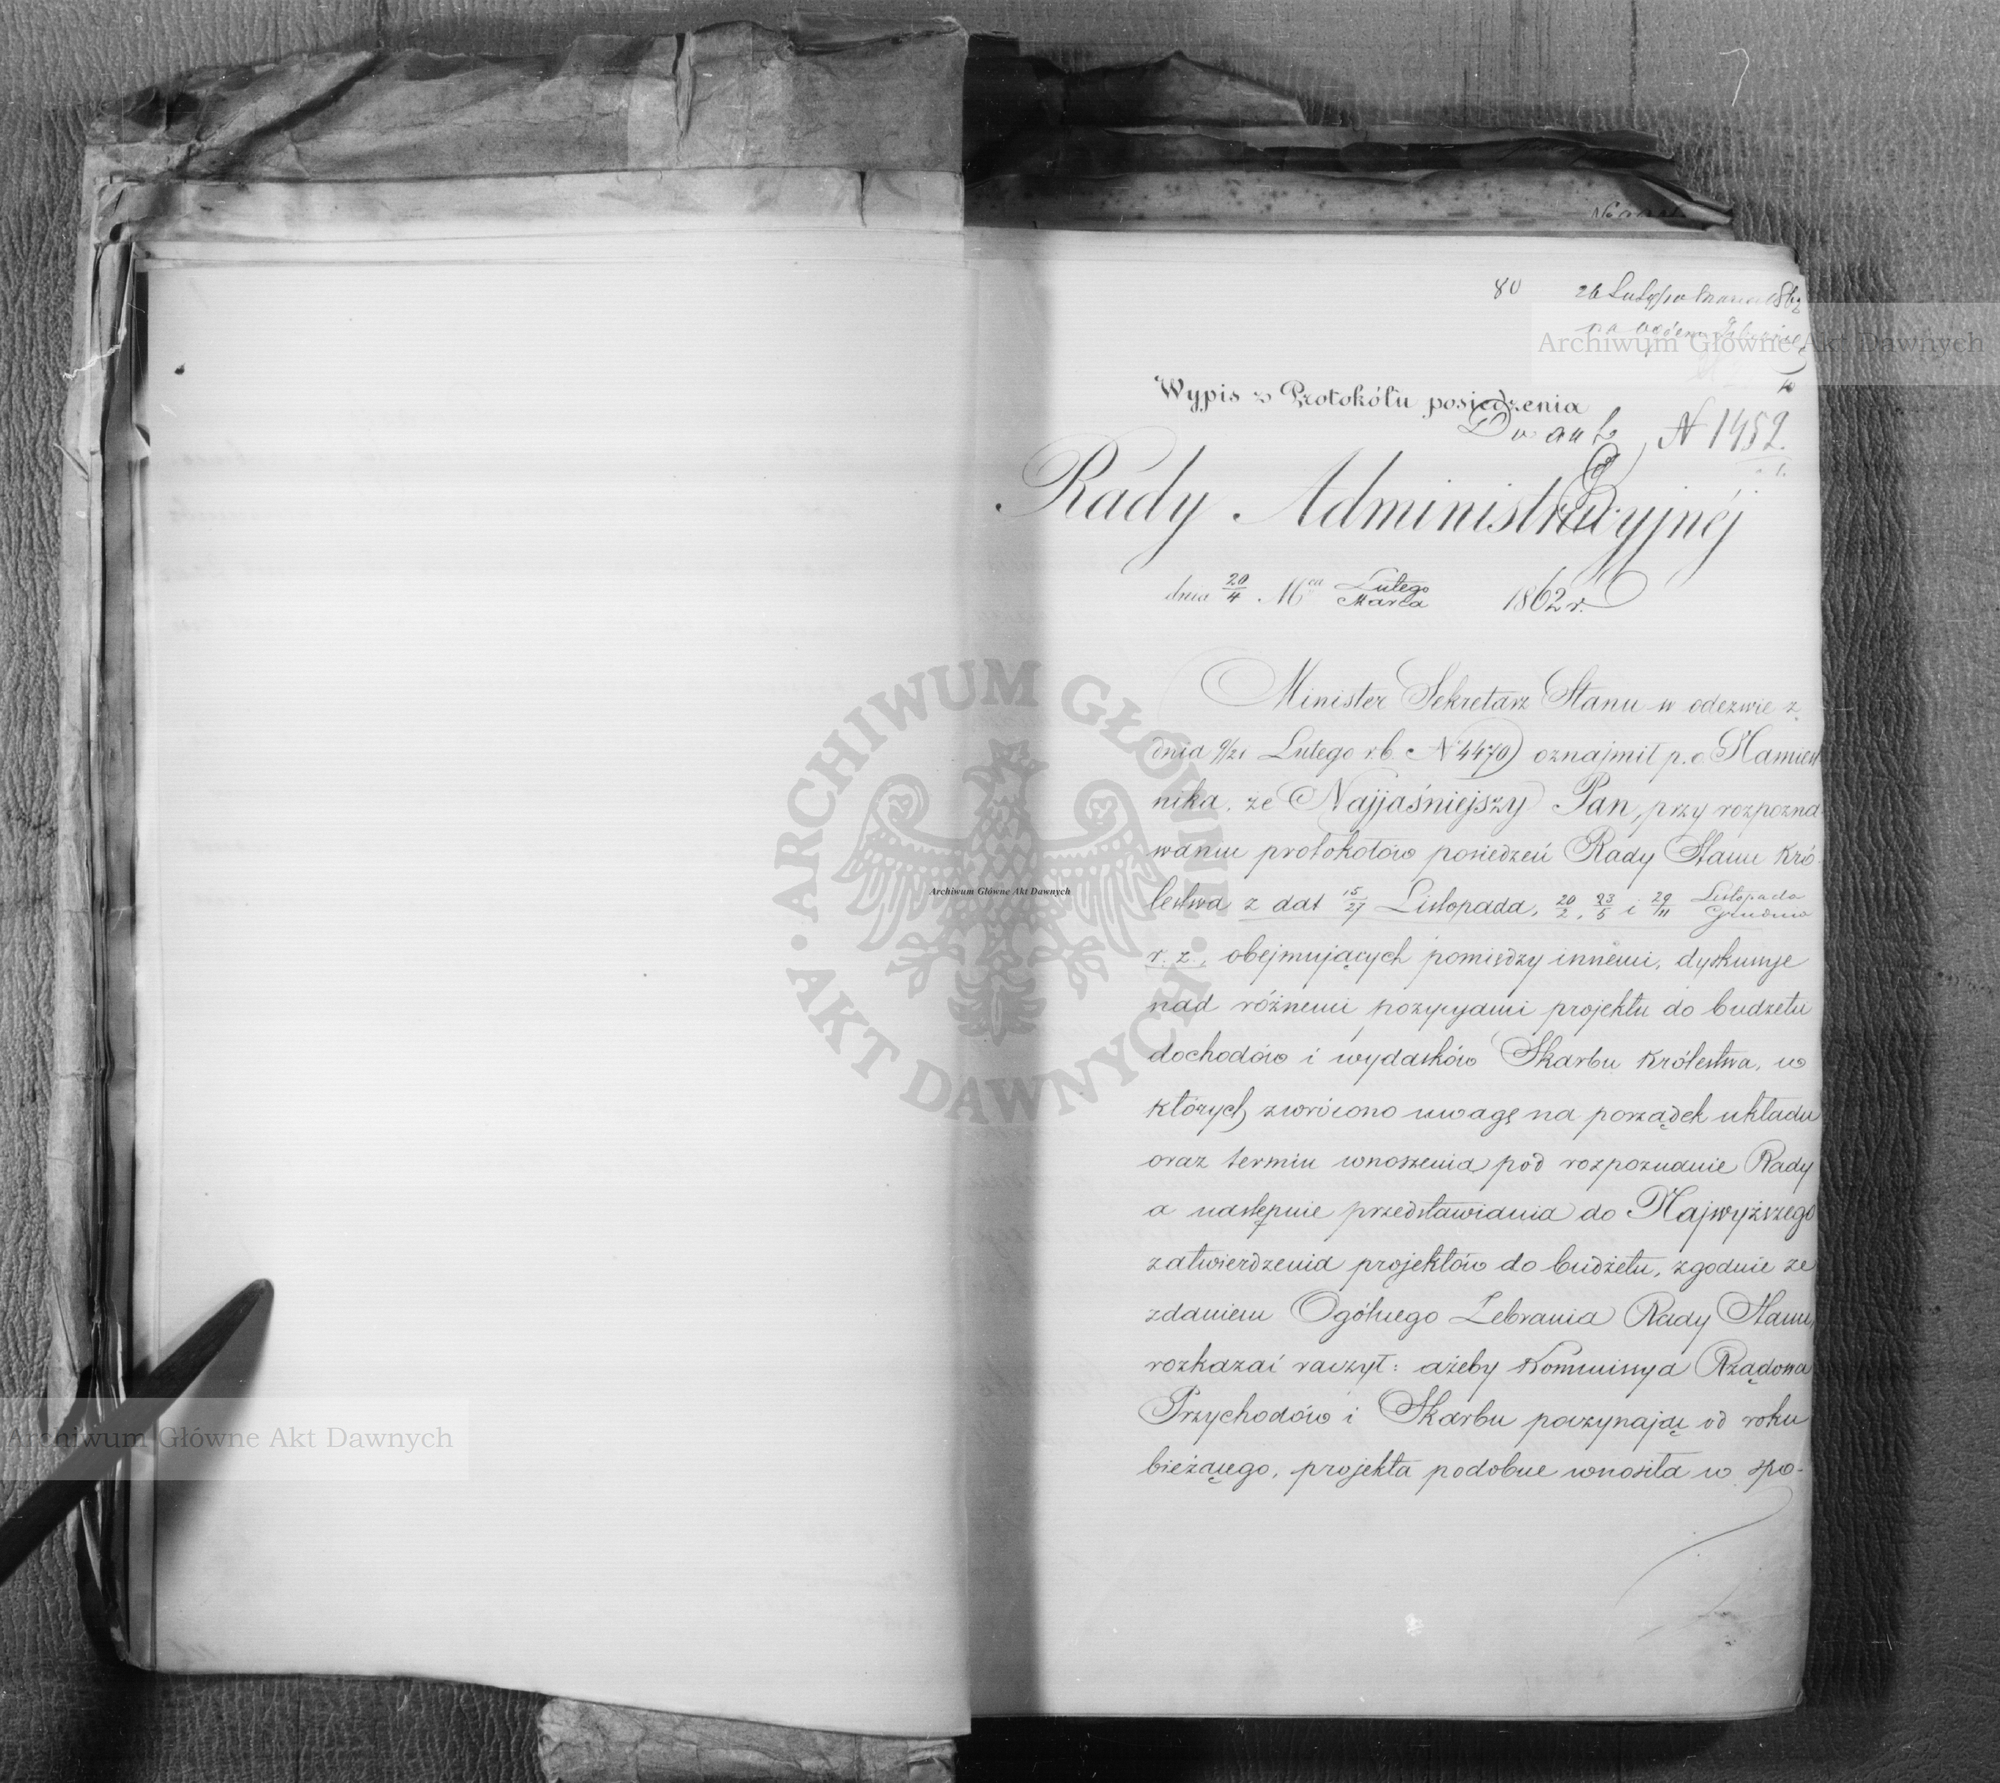 80 26 Luty/10 Marca 1862
Wypis z Protokółu posiedzenia
N 1452.
Rady Administracyjnéj
dnia 20/4 Mca Lutego/Marca 1862 r.
Minister Sekretarz Stanu w odezwie z
dnia 9/21 Lutego r.b. N 4470 oznajmił p.o. Namiest-
nika, że Najjaśniejszy Pan, przy rozpozna-
waniu protokołów posiedzeń Rady Stanu Kró-
lestwa z dat 15/27 Listopada, 20/2, 23/5 i 29/11 Listopada/Grudnia
r. z., obejmujących pomiędzy innemi, dyskussye
nad różnemi pozycyami projektu do budżetu
dochodów i wydatków Skarbu Królestwa, w
których zwrócono uwagę na porządek układu
oraz termin wnoszenia pod rozpoznanie Rady
a następnie przedstawiania do Najwyższego
zatwierdzenia projektów do budżetu, zgodnie ze
zdaniem Ogólnego Zebrania Rady Stanu,
rozkazać raczył: ażeby Kommissya Rządowa
Przychodów i Skarbu poczynając od roku
bieżącego, projekta podobne wnosiła w spo-
Archiwum Główne Akt Dawnych
ARCHIWUM GŁÓWNE AKT DAWNYCH
Archiwum Główne Akt Dawnych
Archiwum Główne Akt Dawnych